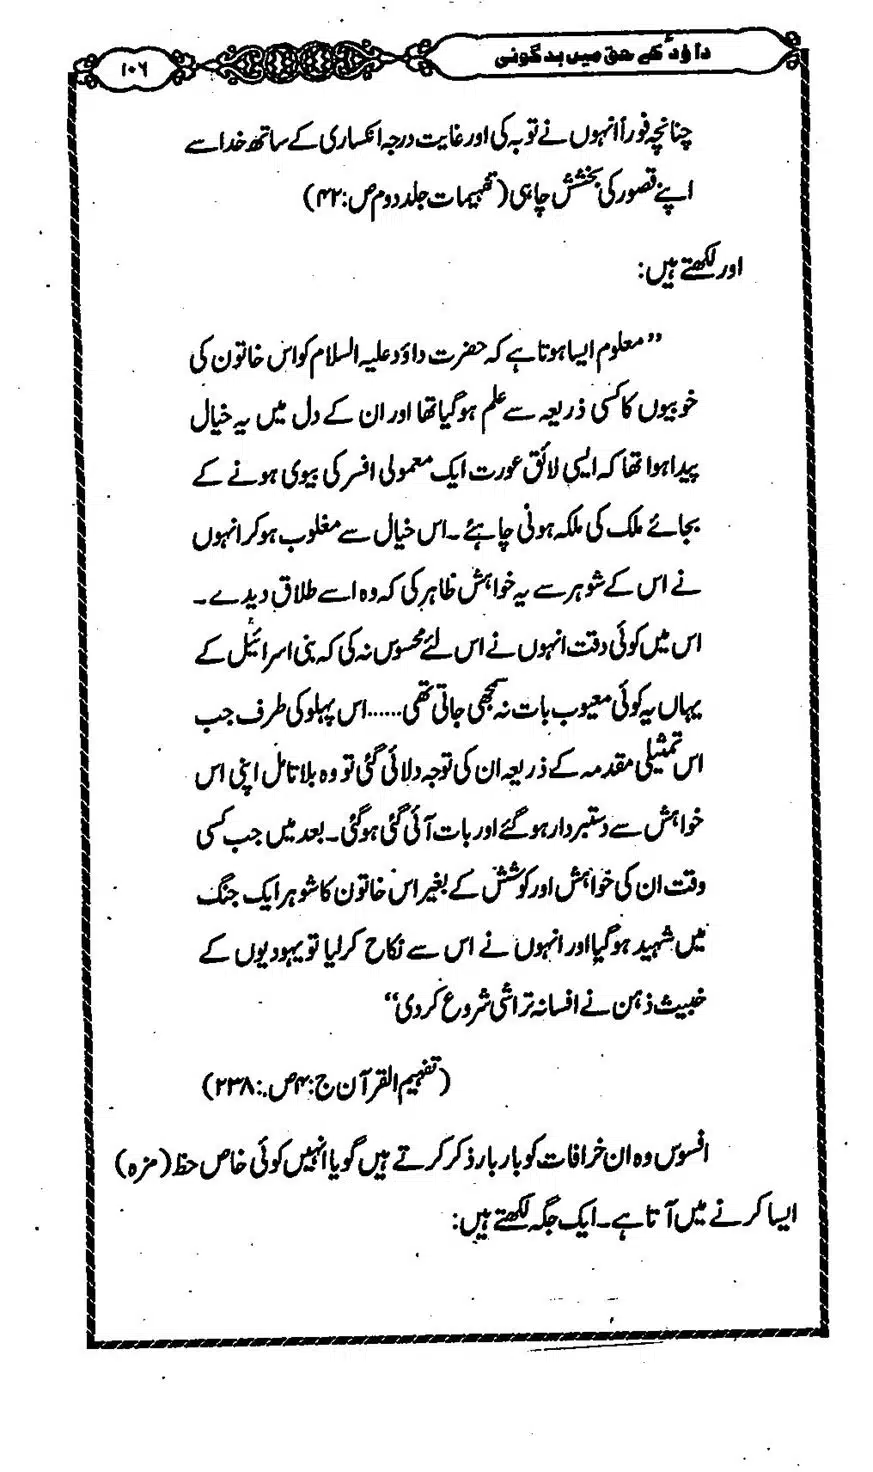 داؤدؑ کے حق میں بدگوئی
۱۰۶
چنانچہ فوراً انہوں نے توبہ کی اور غایت درجہ انکساری کے ساتھ خدا سے
اپنے قصور کی بخشش چاہی (تفہیمات جلد دوم ص:۴۲)
اور لکھتے ہیں:
”معلوم ایسا ہوتا ہے کہ حضرت داؤد علیہ السلام کو اس خاتون کی
خوبیوں کا کسی ذریعہ سے علم ہو گیا تھا اور ان کے دل میں یہ خیال
پیدا ہوا تھا کہ ایسی لائق عورت ایک معمولی افسر کی بیوی ہونے کے
بجائے ملک کی ملکہ ہونی چاہئے۔ اس خیال سے مغلوب ہو کر انہوں
نے اس کے شوہر سے یہ خواہش ظاہر کی کہ وہ اسے طلاق دیدے۔
اس میں کوئی دقت انہوں نے اس لئے محسوس نہ کی کہ بنی اسرائیل کے
یہاں یہ کوئی معیوب بات نہ سمجھی جاتی تھی......اس پہلو کی طرف جب
اس تمثیلی مقدمہ کے ذریعہ ان کی توجہ دلائی گئی تو وہ بلا تامل اپنی اس
خواہش سے دستبردار ہو گئے اور بات آئی گئی ہو گئی۔ بعد میں جب کسی
وقت ان کی خواہش اور کوشش کے بغیر اس خاتون کا شوہر ایک جنگ
میں شہید ہو گیا اور انہوں نے اس سے نکاح کر لیا تو یہودیوں کے
خبیث ذہن نے افسانہ تراشی شروع کر دی“
(تفہیم القرآن ج:۴ص.:۲۳۸)
افسوس وہ ان خرافات کو بار بار ذکر کرتے ہیں گویا انہیں کوئی خاص حظ (مزہ)
ایسا کرنے میں آتا ہے۔ ایک جگہ لکھتے ہیں: